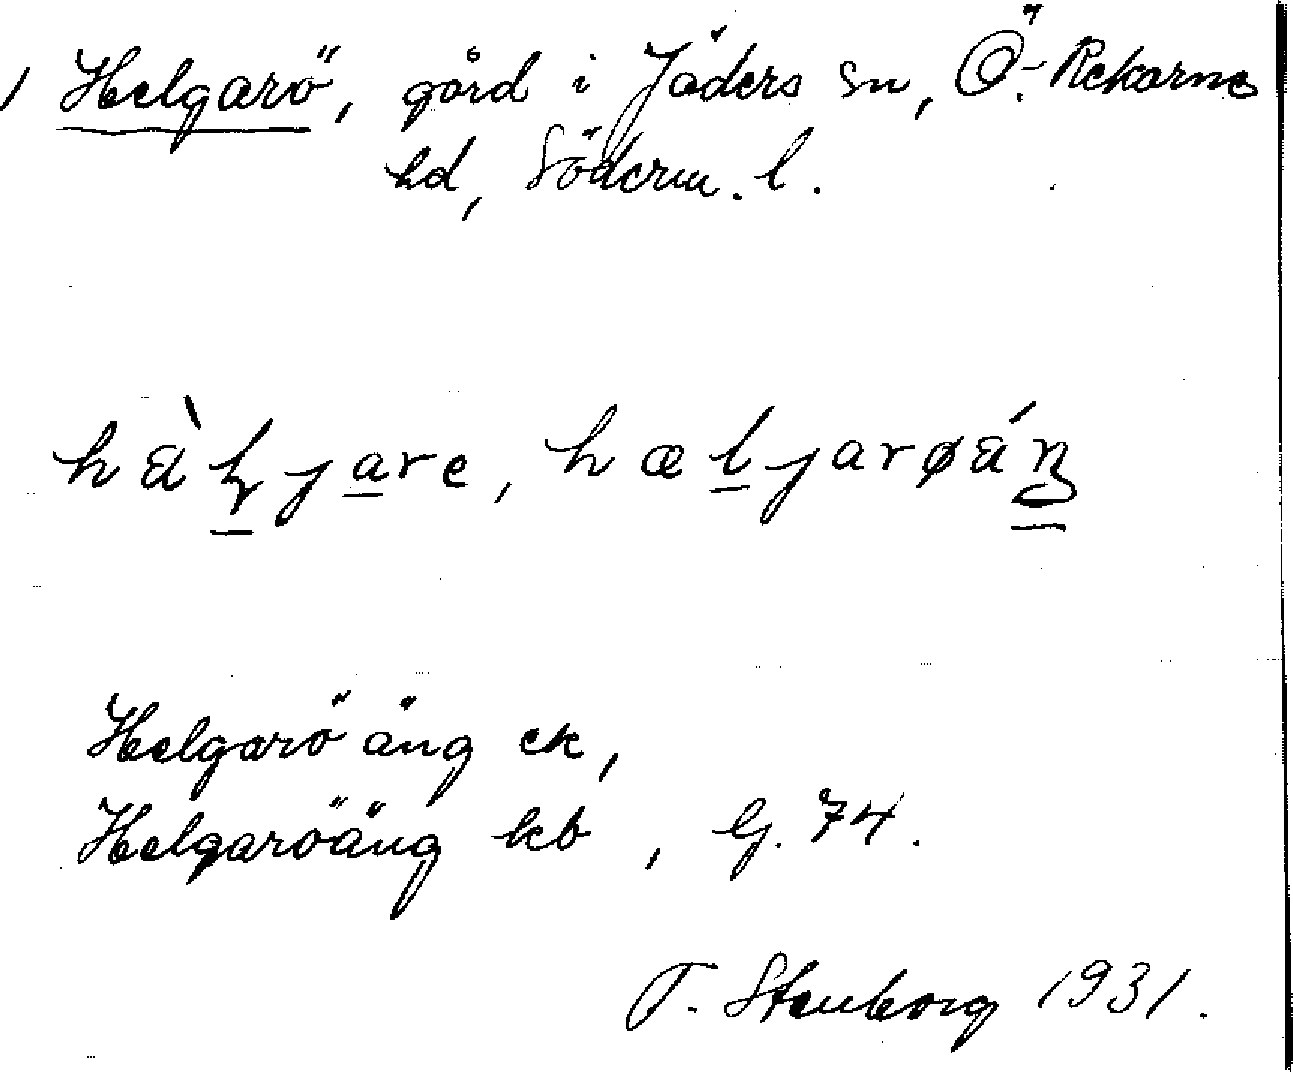 Helgarö, gård i Jäders sn, Ö.-Rekarne
hd, Söderm. l.
hä̀l̠ja̠re, hæl̠jarøä́ŋ̠
Helgarö äng ek,
Helgaröäng kb, G. 74.
T. Stenborg 1931.